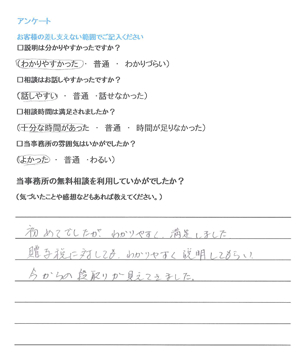 アンケート
お客様の差し支えない範囲でご記入ください
□説明は分かりやすかったですか？
（わかりやすかった ・ 普通 ・ わかりづらい）
□相談はお話しやすかったですか？
（話しやすい ・ 普通 ・話せなかった）
□相談時間は満足されましたか？
（十分な時間があった ・ 普通 ・ 時間が足りなかった）
□当事務所の雰囲気はいかがでしたか？
（よかった ・ 普通 ・わるい）
当事務所の無料相談を利用していかがでしたか？
（気づいたことや感想などもあれば教えてください。）
初めてでしたが、わかりやすく、満足しました
贈与税に対しても、わかりやすく説明してもらい
今からの段取りが見えてきました。